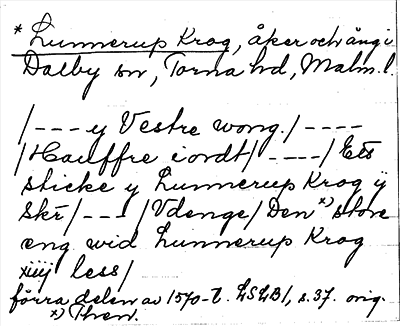 * Lunnerup Krog, åker och äng i
Dalby sn, Torna hd, Malm. l.
/--- y Vestre wong./----
/Hauffre iordt/----/Ets
sticke y Lunnerup Krog ÿ
skr̄/---/Vdenge/Den x) store
eng wid Lunnerup Krog
xiiij less/
förra delen av 1570-t. LSLB1, s.37. orig.
x) Ihren.